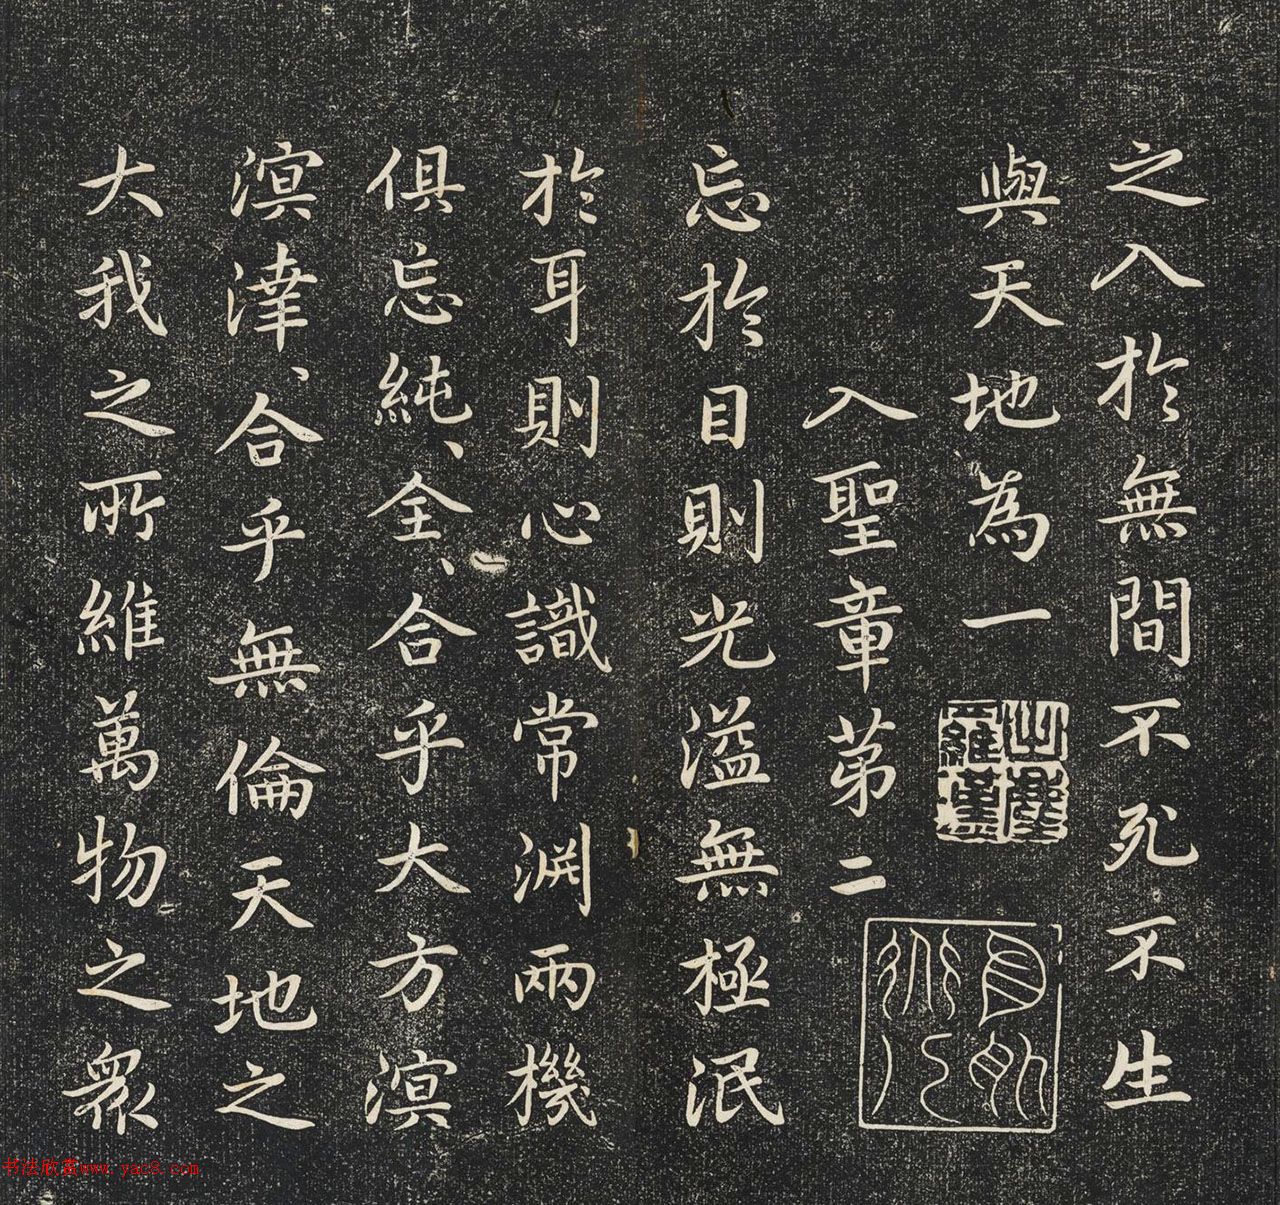 之入於無間不死不生
與天地為一
入聖章苐二
忘於目則光溢無極泯
於耳則心識常淵兩機
俱忘純、全、合乎大方溟
溟涬、合乎無倫天地之
大我之所維萬物之眾
书法欣赏www.yac8.com